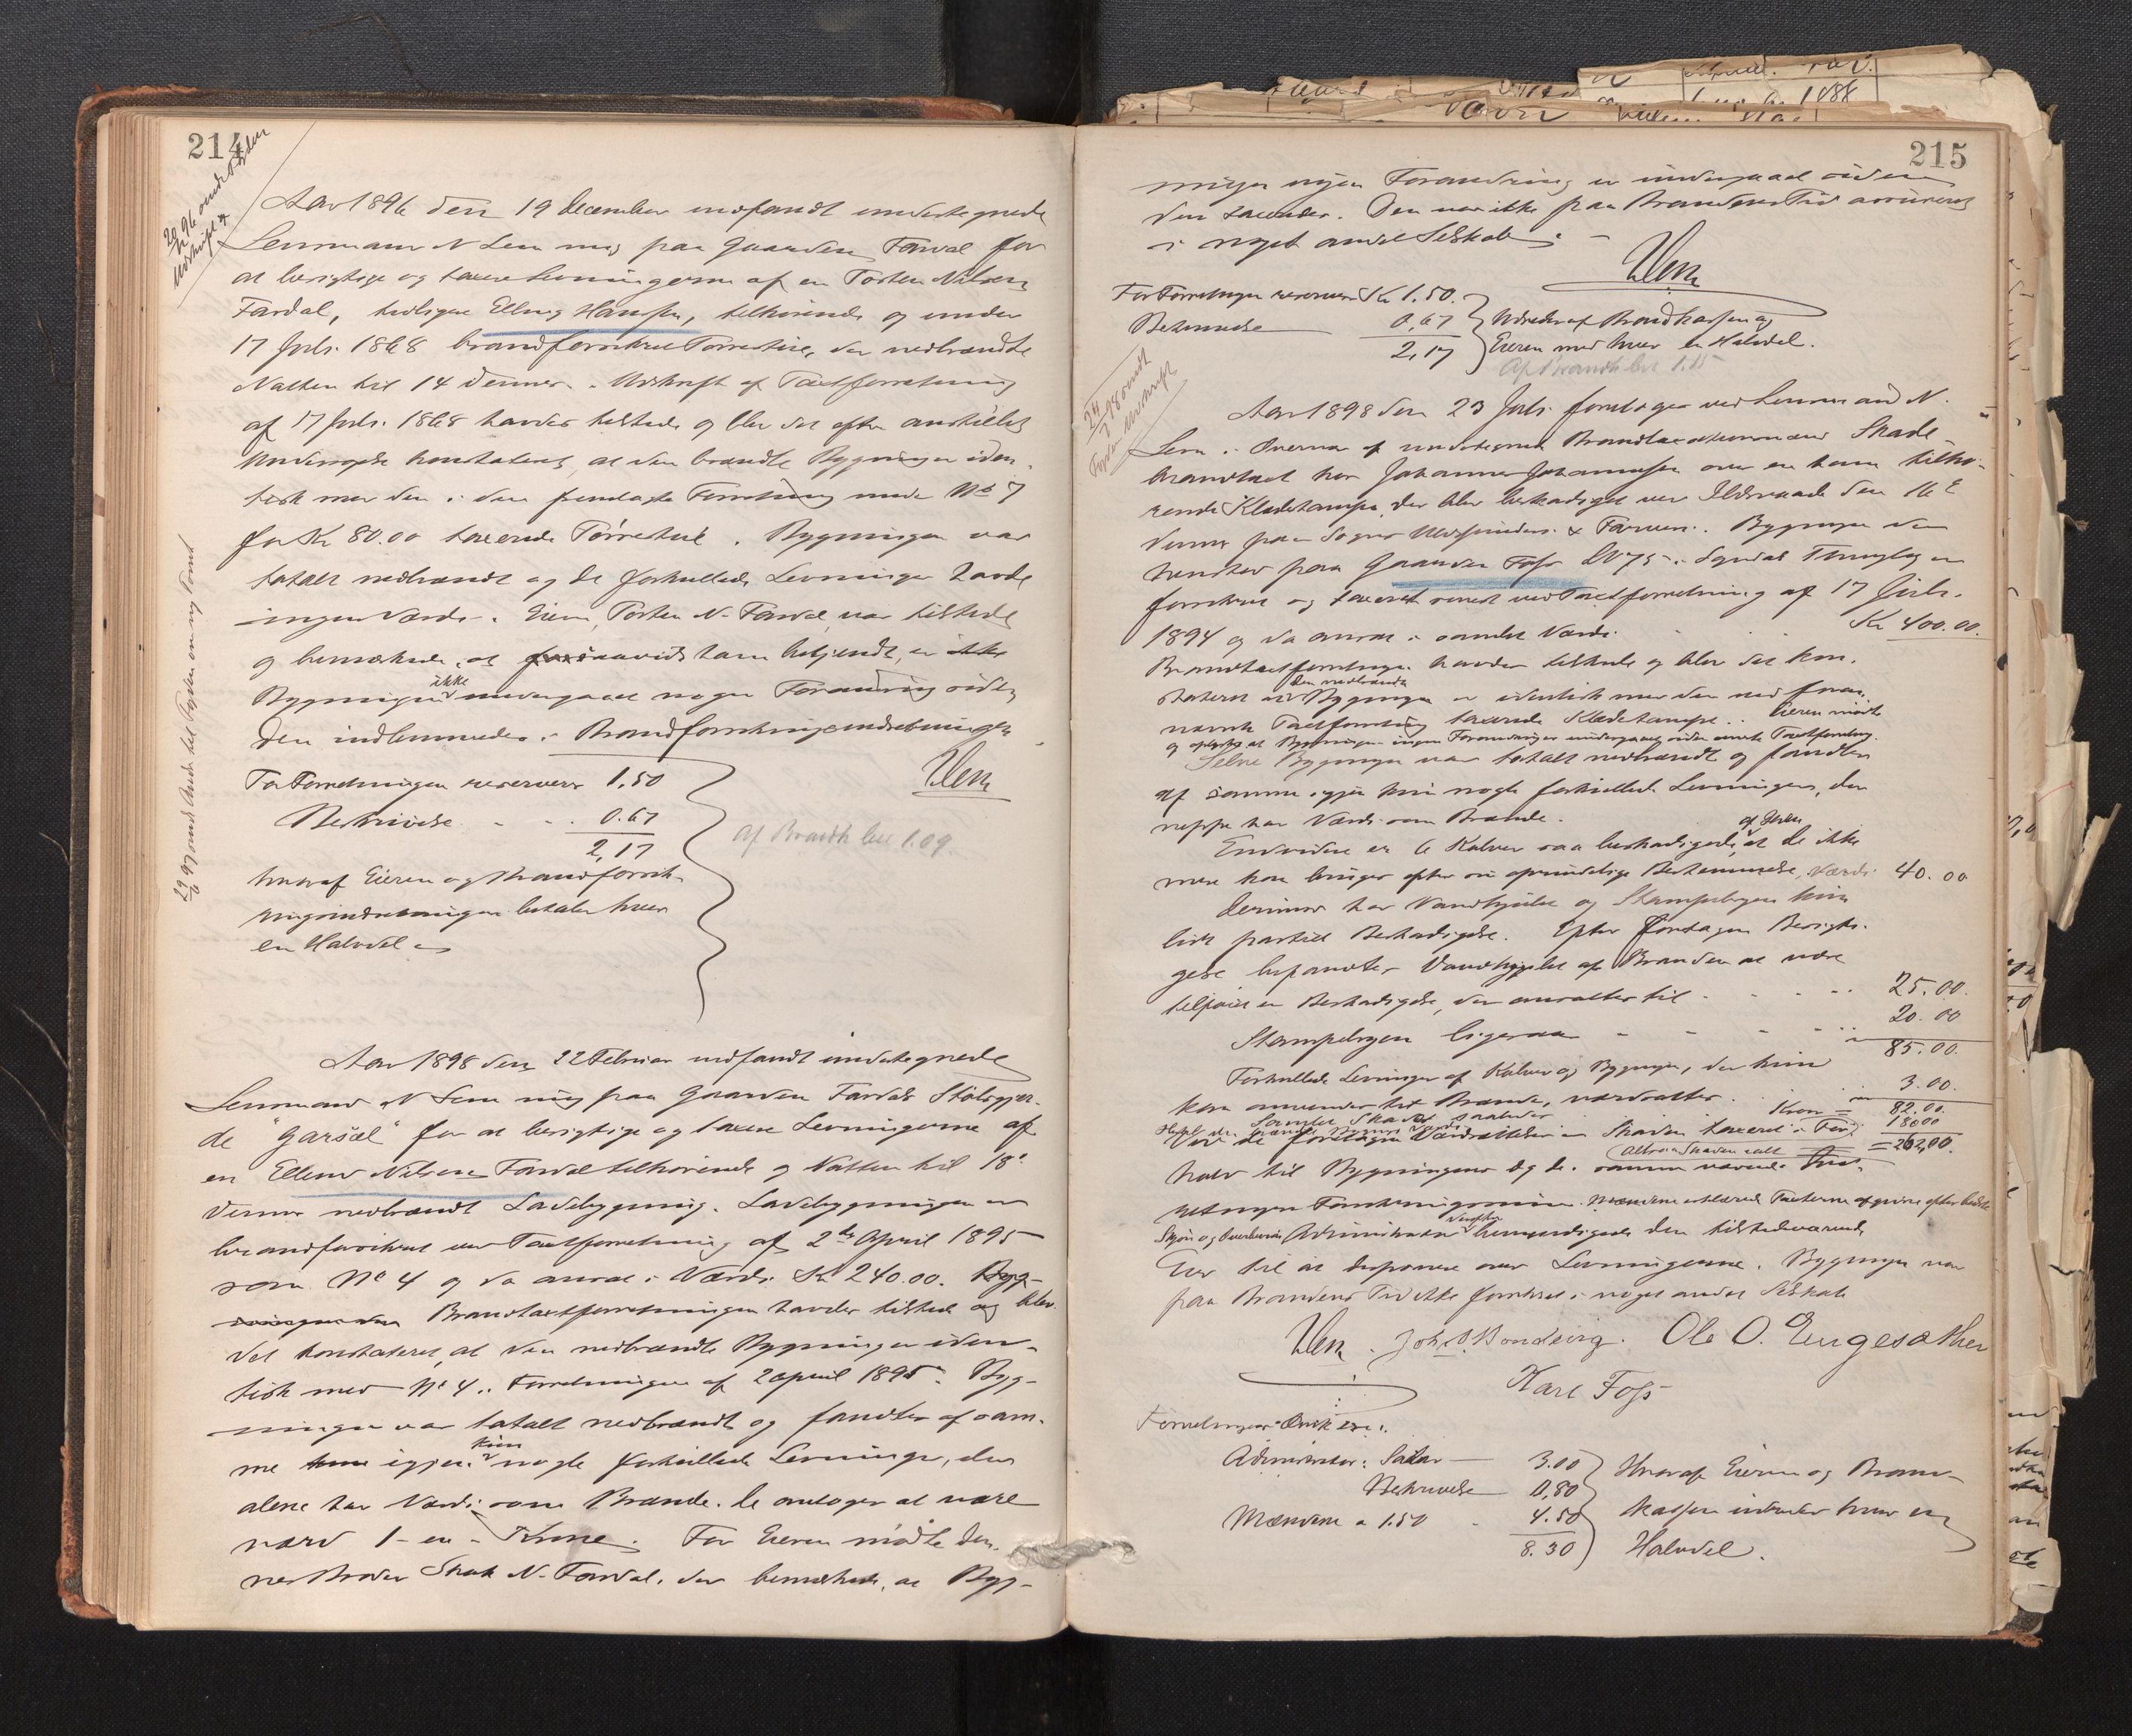 214
Aar 1896 den 19 December indfandt undertegnede
Lensmand N Lem mig paa Gaarden Fardal for
at besigtige og taxere Levningerne af en Torsten Nilsen
Fardal, tidligere Elling Hansen, tilhørende og under
17 Juli 1868 brandforsikret Tørrestue, der nedbrændte
Natten til 14 dennes. Udskrift af Taxtforretning
af 17 Juli 1868 havdes tilstede og blev det efter anstillet
Undersøgelse konstateret, at den brændte Bygning er iden-
tisk med den i den fremlagte Forretning under No 7
for Kr 80.00 taxerede Tørrestue. Bygningen var
totalt nedbrændt og de forkullede Levninger havde
ingen Værdi. Eieren, Torsten N. Fardal, var tilstede
og bemærkede, at saavidt ham bekjendt, er
Bygningen ikke undergaaet nogen Forandring siden
den indlemmedes i Brandforsikringsindretningen.
NLem
For Forretningen reserveres 1.50
Beskrivelse - - . 0.67
2,17
Af Brandk bet 1.09.
hvoraf Eieren og Brandforsik-
ringsindretningen betaler hver
en Halvdel
Aar 1898 den 22 Februar indfandt undertegnede
Lensmand N Lem mig paa Gaarden Fardals Stølsgjer-
de "Garsæl" for at besigtige og taxere Levningerne af
en Ellend Nilsen Fardal tilhørende og Natten til 18de
dennes nedbrændt Ladebygning. Ladebygningen er
brandforsikret ved Taxtforretning af 2den April 1895
som No 4 og da ansat i Værdi Kr 240.00. Byg-
Brandtaxtforretningen havdes tilstede og blev
det konstateret, at den nedbrændte Bygning er iden-
tisk med No 4 i Forretningen af 2 April 1895. Byg-
ningen var totalt nedbrændt og fandtes af sam-
me igjen kun nogle forkullede Levninger, der
alene har Værdi som Brænde. De antages at være
værd 1 - en - Krone. For Eieren mødte den-
nes Broder N. Fardal, der bemærkede, at Byg-
215
ningen ingen Forandring er undergaaet siden
den taxeredes. Den var ikke paa Brandens Tid assureret
i noget andet Selskab. -
NLem
For Forretningen reserveres Kr 1.50.
Beskrivelse 0,67
2,17
Udredes af Brandkassen og
Eieren med hver en Halvdel.
Af Brandk bet 1.
Aar 1898 den 23 Juli foretoges ved Lensmand N.
Lem i Overvær af undertegnede Brandtaxationsmænd Skade-
brandtaxt hos Johannes Johannessen over en ham tilhø-
rende Klædestampe, der blev beskadiget ved Ildsvaade den 16de
dennes paa Sogns Uldspinderi & Farveri. Bygningen
paa Gaarden Foss No 75 i Syndals Thinglag er
forsikret og taxeret senest ved Taxtforretning af 17 Juli
1894 og da ansat i samlet Værdi . . . Kr 400.00.
Brandtaxtforretningen havdes tilstede og blev det kon-
stateret at den nedbrændte Bygning er identisk med den ved
nævnte Taxtforretning taxerede Klædestampe. Eieren mødte
og oplyste at Bygningen ingen Forandringer undergaaet siden sidste Taxtforretning.
Selve Bygningen var totalt nedbrændt og fandtes
af samme igjen kun nogle forkullede Levninger, der
neppe har Værdi som Brænde.
Endvidere er 6 Kalver saa beskadigede af Ilden, at de ikke
mere kan bruges efter sin oprindelige Bestemmelse, Værdi 40.00
Derimod har Vandhjulet og Stampebygen kun
lidt partiel Beskadigelse. Efter foretagen Besigti-
gelse befandtes Vandhjulet af Branden at være
tilføiet en Beskadigelse, der ansattes til . . . . 25.00.
Stampebygen ligesaa - - - - 20.00
85.00.
Forkullede Levninger af Kalver og Bygningen, der kun
kan anvendes til Brænde, værdsattes . . . 3.00.
Kroner = 82.00.
18000
= 262,00.
Altsaa Skaden ialt
Mændene erklærede Taxterne afgivne efter bedste
Skjøn og Overbevisning. Administrator bemyndigede den tilstedeværende
Eier til at disponere over Levningerne. Bygningen var
paa Brandens Tid ikke forsikret i noget andet Selskab
NLem. Joh. O. Bondevig. Ole O. Engesæther
Karl Foss
Forretningen kr.:
Administrator: Salær 3.00
Beskrivelse 0,80
Mændene a 1.50 - 4.50
8.30
Hvoraf Eieren og Brand-
kassen udreder hver en
Halvdel.